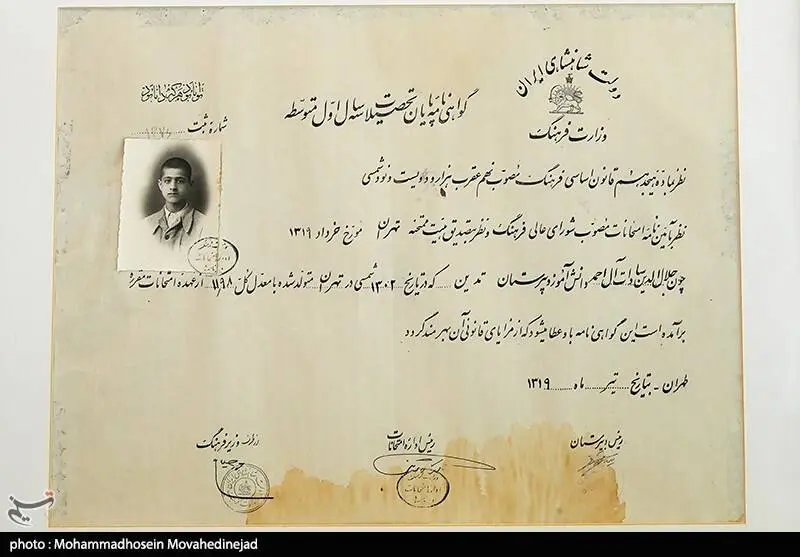 دولت شاهنشاهی ایران
وزارت فرهنگ
گواهی نامهٔ پایان تحصیلات سه ساله اول متوسطه
توانا بود هر که دانا بود
شمارهٔ ثبت
نظر بمادهٔ هیجدهم قانون اساسی فرهنگ مصوب نهم عقرب هزار و دویست و نود شمسی
نظر بآئین نامهٔ امتحانات مصوب شورای عالی فرهنگ و نظر بتصدیق هیئت ممتحنهٔ تهران مورّخ خرداد ۱۳۱۹
چون جلال الدین سادات آل احمد دانش آموز دبیرستان تمدین که در تاریخ ۱۳۰۲ شمسی در تهران متولد شده با معدل کل ۱۱/۹۸ از عهده امتحانات مقرره
برآمده است این گواهی نامه باو عطا میشود که از مزایای قانونی آن بهره مند گردد
طهران - بتاریخ تیر ماه ۱۳۱۹
رئیس دبیرستان
رئیس اداره امتحانات
از طرف وزیر فرهنگ
تسنیم
photo : Mohammadhosein Movahedinejad